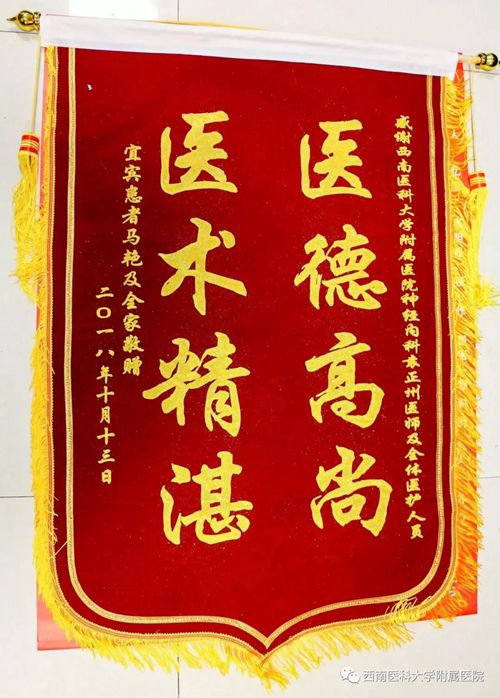 感谢西南医科大学附属医院神经内科袁正州医师及全体医护人员
医德高尚
医术精湛
宜宾患者马艳及全家敬赠
二〇一八年十月十三日
西南医科大学附属医院